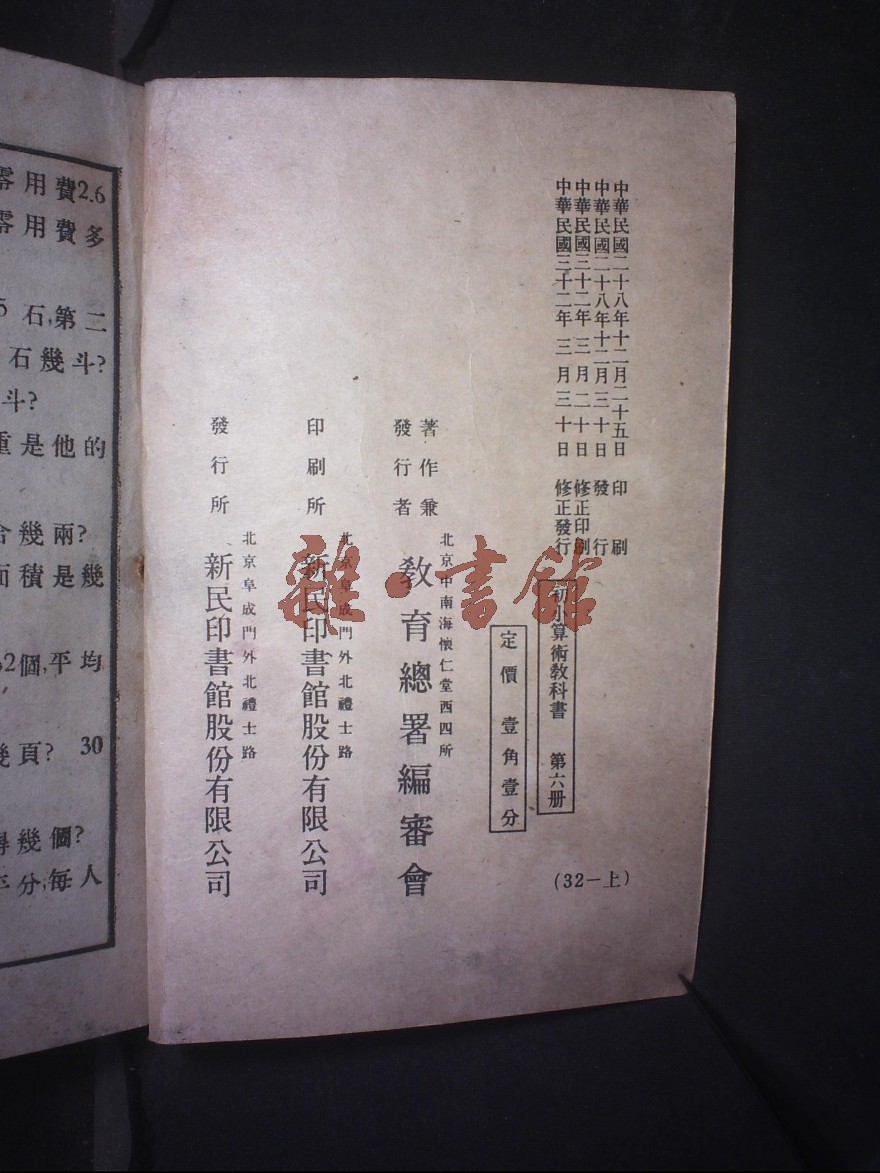 中華民國二十八年十二月二十五日 印刷
中華民國二十八年十二月三十日 發行
中華民國三十二年 三月 二十日 修正印刷
中華民國三十二年 三月三十日 修正發行
初小算術教科書 第六册
(32－上)
定價 壹角壹分
著作兼
發行者
北京中南海懷仁堂西四所
教育總署編審會
印刷所
北京阜成門外北禮士路
新民印書館股份有限公司
發行所
北京阜成門外北禮士路
新民印書館股份有限公司
雜·書館
零用費2.6
零用費多
5 石,第二
石幾斗?
斗?
重是他的
合幾兩?
面積是幾
2個,平均
幾頁? 30
得幾個?
平分,每人